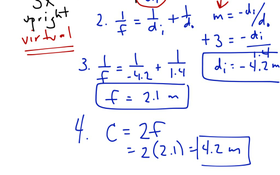 3x
upright
virtual
2. 1/f = 1/di + 1/do
m = -di/do
+3 = -di/1.4
di = -4.2 m
3. 1/f = 1/-4.2 + 1/1.4
f = 2.1 m
4. C = 2f
= 2(2.1) = 4.2 m